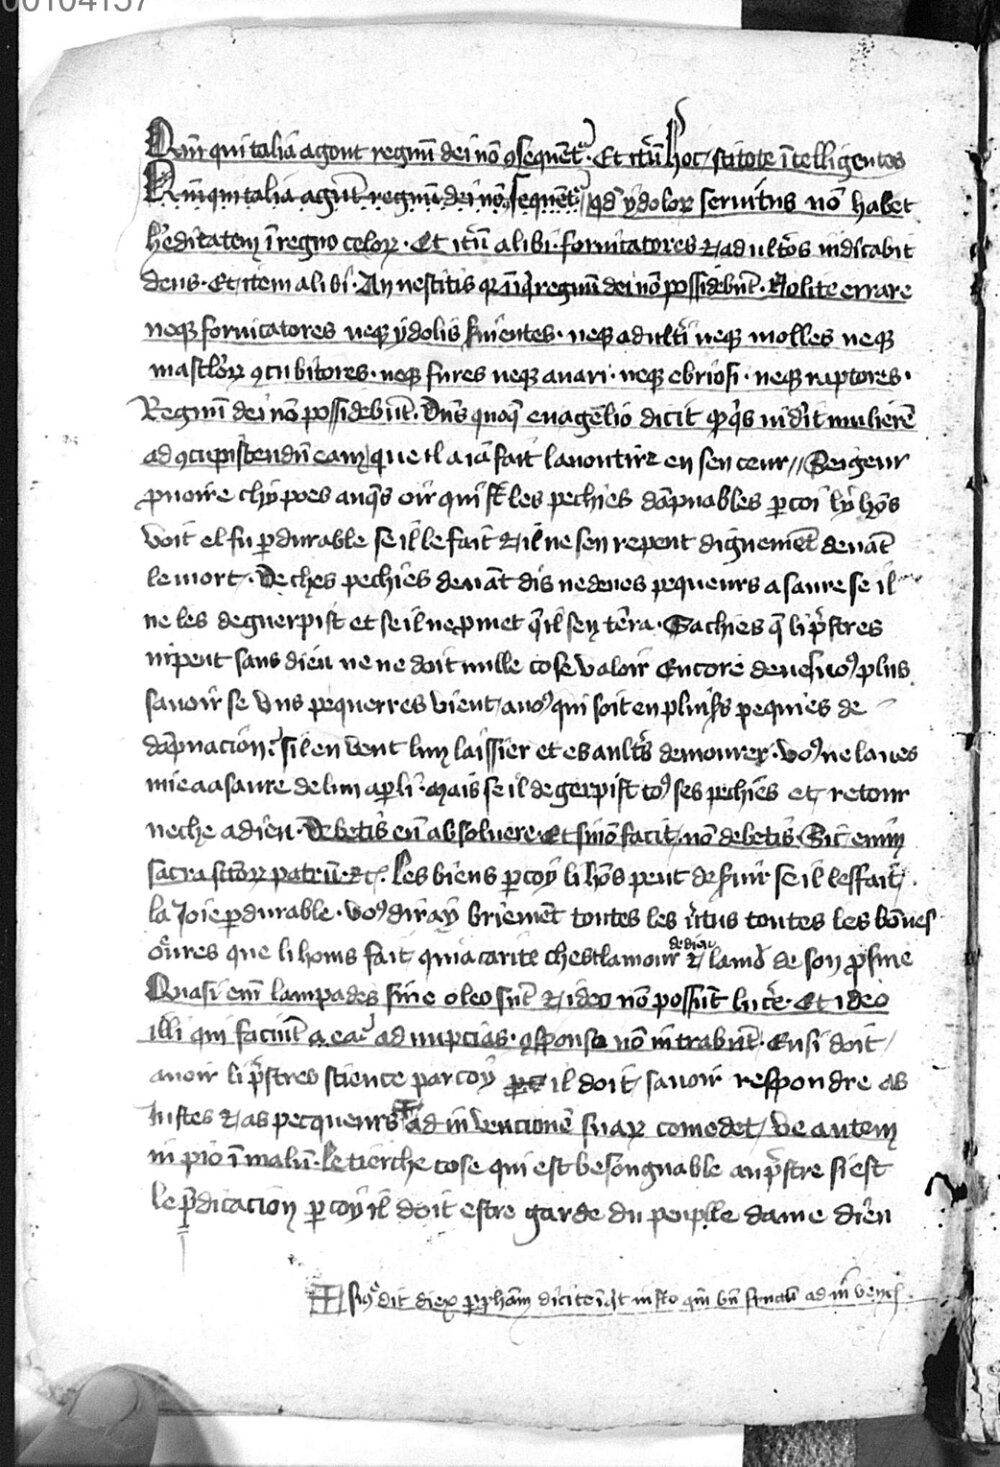 00104157
Qm̄ qui talia agont regnū dei nō ꝯsequēt᷑. Et itū hoc stitote ītelligentes
Qm̄ qui talia agūt regnū dei nō ꝯsequēt᷑ qd ydoloꝝ seruitus nō habet
h'editatem ī regno celoꝝ. Et itū alibi. fornicatores ⁊ adult'os iudicabit
deus. Et item alibi. An nescitis qr īiq̄ regnū dei nō possidebūt. Nolite errare
neqꝫ fornicatores neqꝫ ydolis s'uientes. neqꝫ adult'i neqꝫ molles neqꝫ
masclōꝝ ꝯcubitores. neqꝫ fures neqꝫ auari. neqꝫ ebriosi. neqꝫ raptores.
Regnū dei nō possidebūt. Dn̄s quoqꝫ euāgelio dicit qꝫ q's uid'it mulierē
ad ꝯcupiscendū eam que il a ia fait lauoutire en sen ceur // Seigeur
prouoire chy poes auq̄s oir qui st̄ les pechies dāpnables ꝑ coi ly hōs
voit el fu ꝑdurable se il le fait ⁊ il ne sen repent dignemēt deuāt
le mort. De ches pechies deuāt dis ne deues pequeurs asaure se il
ne les deguerpist et se il ne ꝓmet q̄ il sen tēra. Sachies q̄ li p̄stres
nipeut sans dieu ne ne doit nulle cose valoir Encore deues uoꝰ plus
sauoir se vns pequerres vient a uoꝰ qui soit en pluis's pequies de
dāpnacion. sil en veut lun laissier et es ault's demourer. voꝰ ne laues
mie a asaure de lun a ꝑ li. Mais se il degerpist toꝰ ses pechies et retour
neche a dieu. Debetis eū absoluere. Et si nō facit, nō debetis. Sic enim
sacra sc̄oꝝ patrū. ⁊c̄. Les biens ꝑ coy li hōs peut des'uir se il les fait
la Joie ꝑdurable. voꝰ diray briemēt toutes les u'tus toutes les bōnes
oūres que li homs fait qui a carite chest lamour de dieu ⁊ lamō de son prosme
Quasi enī lampades sine oleo sūt ⁊ ideo nō possūt luc'e. Et ideo
illi qui faciūt ad nupcias. ꝯ sponso nō intrabūt. Ensi doit
auoir li p̄stres science par coy il doit sauoir respondre as
Justes ⁊ as pecqueurs ad inuencionē suaꝝ comedet, Ve autem
inpio ī malū. Le tierche cose qui est besongnable au p̄stre si est
le p̄dicacion ꝑ coy il doit estre garde du peuple dame dieu
dit diex dicite iusto ad inuenc̄